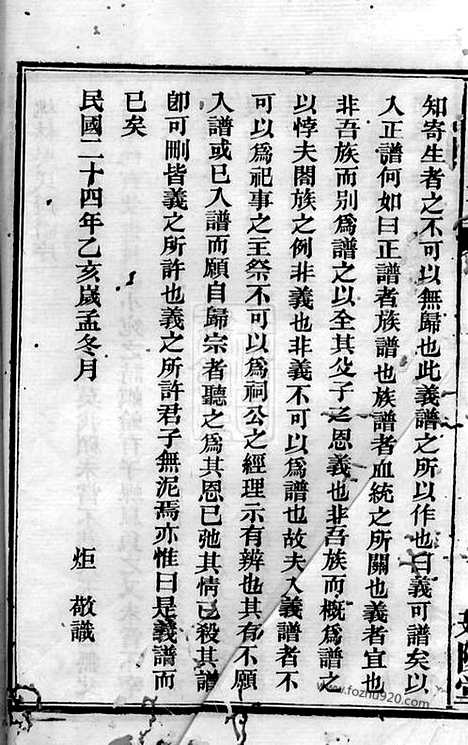 知寄生者之不可以無歸也此義譜之所以作也曰義可譜矣以
入正譜何如曰正譜者族譜也族譜者血統之所關也義者宜也
非吾族而別爲譜之以全其父子之恩義也非吾族而概爲譜之
以悖夫閤族之例非義也非義不可以爲譜也故夫入義譜者不
可以爲祀事之主祭不可以爲祠公之經理示有辨也其有不願
入譜或已入譜而願自歸宗者聽之爲其恩已弛其情已殺其譜
卽可刪皆義之所許也義之所許君子無泥焉亦惟曰是義譜而
已矣
民國二十四年乙亥歲孟冬月 炬 敬識
www.fozhu920.com